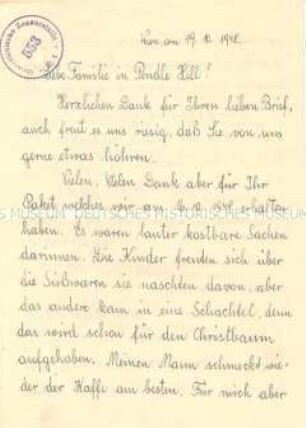 Wien, am 19. 10. 1948.
Österreichische Zensurstelle
533
Liebe Familie in Pendle Hill!
Herzlichen Dank für Ihren lieben Brief,
auch freut es uns riesig, daß Sie von uns
gerne etwas höhren.
Vielen, Vielen Dank aber für Ihr
Paket welches wir am 16. 10. 1948 erhalten
haben. Es waren lauter kostbare Sachen
darinnen. Die Kinder freuden sich über
DEUTSCHES HISTORISCHES MUSEUM
die Süßwaren sie naschten davon, aber
das andere kam in eine Schachtel, denn
das wird schon für den Christbaum
aufgehaben. Meinen Mann schmeckt wie-
der der Kaffe am besten. Für mich aber